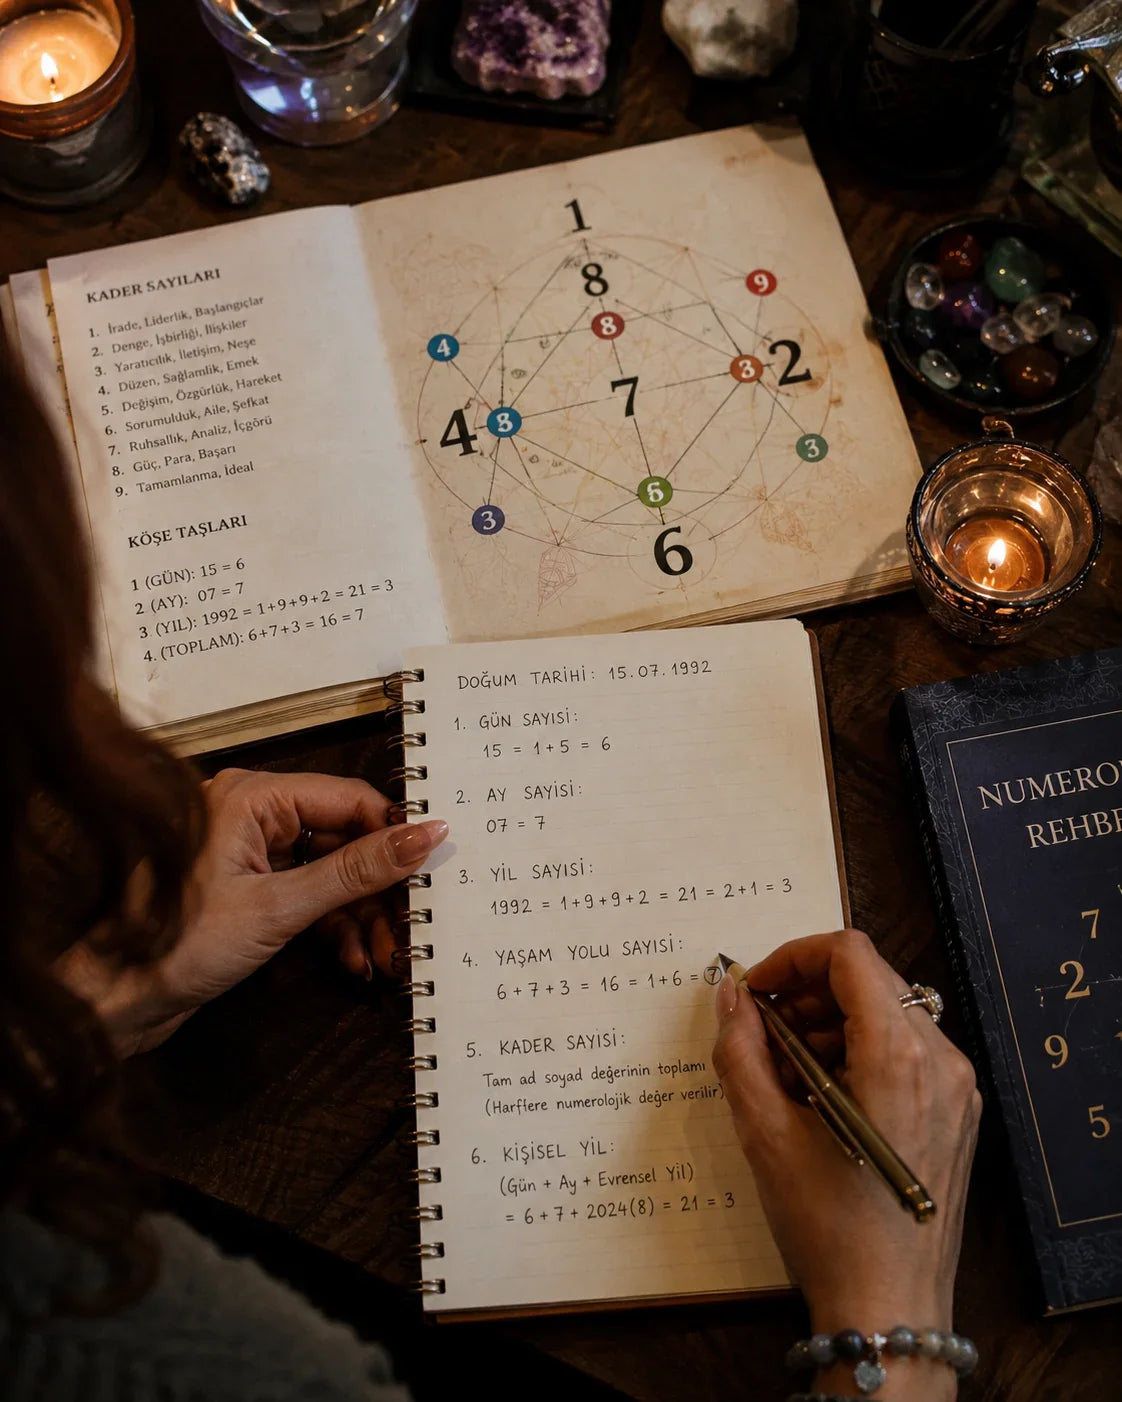 KADER SAYILARI
1. İrade, Liderlik, Başlangıçlar
2. Denge, İşbirliği, İlişkiler
3. Yaratıcılık, İletişim, Neşe
4. Düzen, Sağlamlik, Emek
5. Değişim, Özgürlük, Hareket
6. Sorumuluduk, Aile, Şefkat
7. Ruhsallık, Analiz, İçgörü
8. Güç, Para, Başarı
9. Tamamlanma, İdeal
KÖŞE TAŞLARI
1 (GÜN): 15 = 6
2 (AY): 07 = 7
3. (YIL): 1992 = 1+9+9+2 = 21 = 3
4. (TOPLAM): 6+7+3 = 16 = 7
1
8
9
8
4
3
2
7
4
8
3
3
6
6
DOĞUM TARİHİ: 15.07.1992
1. GÜN SAYISİ:
15 = 1+5 = 6
2. AY SAYİSİ:
07 = 7
3. YİL SAYISİ:
1992 = 1+9+9+2 = 21 = 2+1 = 3
4. YAŞAM YOLU SAYISİ:
6+7+3 = 16 = 1+6 = 7
5. KADER SAYISİ:
Tam ad soyad değerinin toplamı
(Harflere numerolojik değer verilir)
6. KİŞİSEL YİL:
(Gün + Ay + Evrensel Yil)
= 6+7+2024(8) = 21 = 3
NUMERO
REHB
7
2
9
5